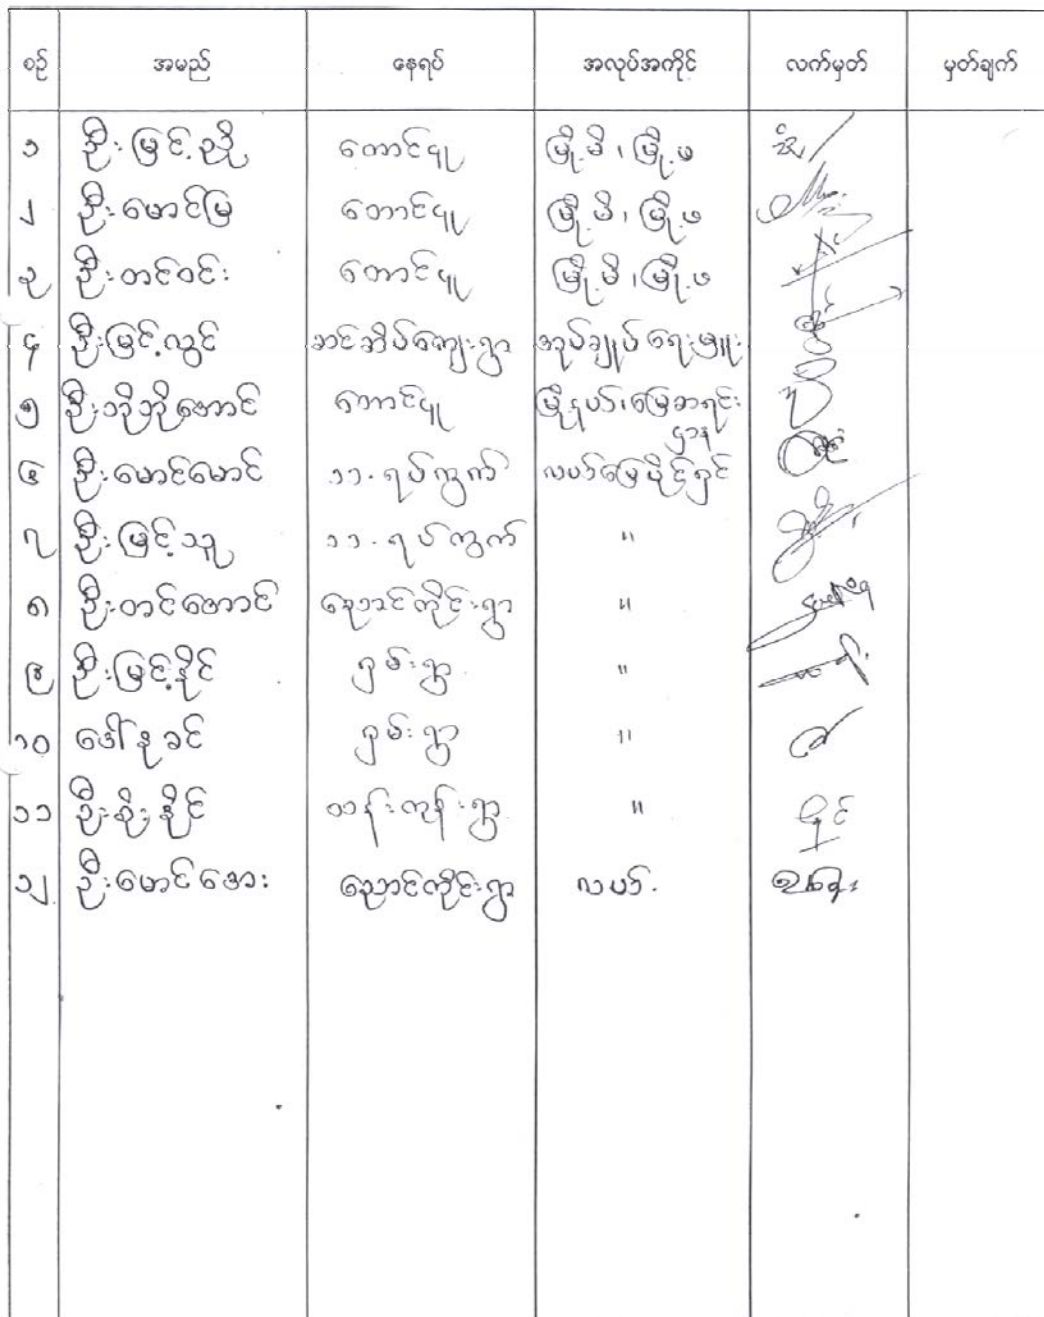 စဉ် အမည် နေရပ် အလုပ်အကိုင် လက်မှတ် မှတ်ချက်
၁ ဦးမြင့်ညို တောင်ငူ မြို့မိ၊ မြို့ဖ
၂ ဦးမောင်မြ တောင်ငူ မြို့မိ၊ မြို့ဖ
၃ ဦးတင်ဝင်း တောင်ငူ မြို့မိ၊ မြို့ဖ
၄ ဦးမြင့်လွင် ဆင်အိပ်ကျေးရွာ အုပ်ချုပ်ရေးမှူး
၅ ဦးဘိုဘိုအောင် တောင်ငူ မြို့နယ်၊ မြေစာရင်း
ဌာန
၆ ဦးမောင်မောင် ၁၁.ရပ်ကွက် လယ်မြေပိုင်ရှင်
၇ ဦးမြင့်သူ ၁၁.ရပ်ကွက် "
၈ ဦးတင်အောင် ညောင်ကိုင်းရွာ "
၉ ဦးမြင့်နိုင် ရှမ်းရွာ "
၁၀ ဒေါ်နုခင် ရှမ်းရွာ "
၁၁ ဦးစိုးနိုင် "
၁၂ ဦးမောင်အေး ညောင်ကိုင်းရွာ လယ်.